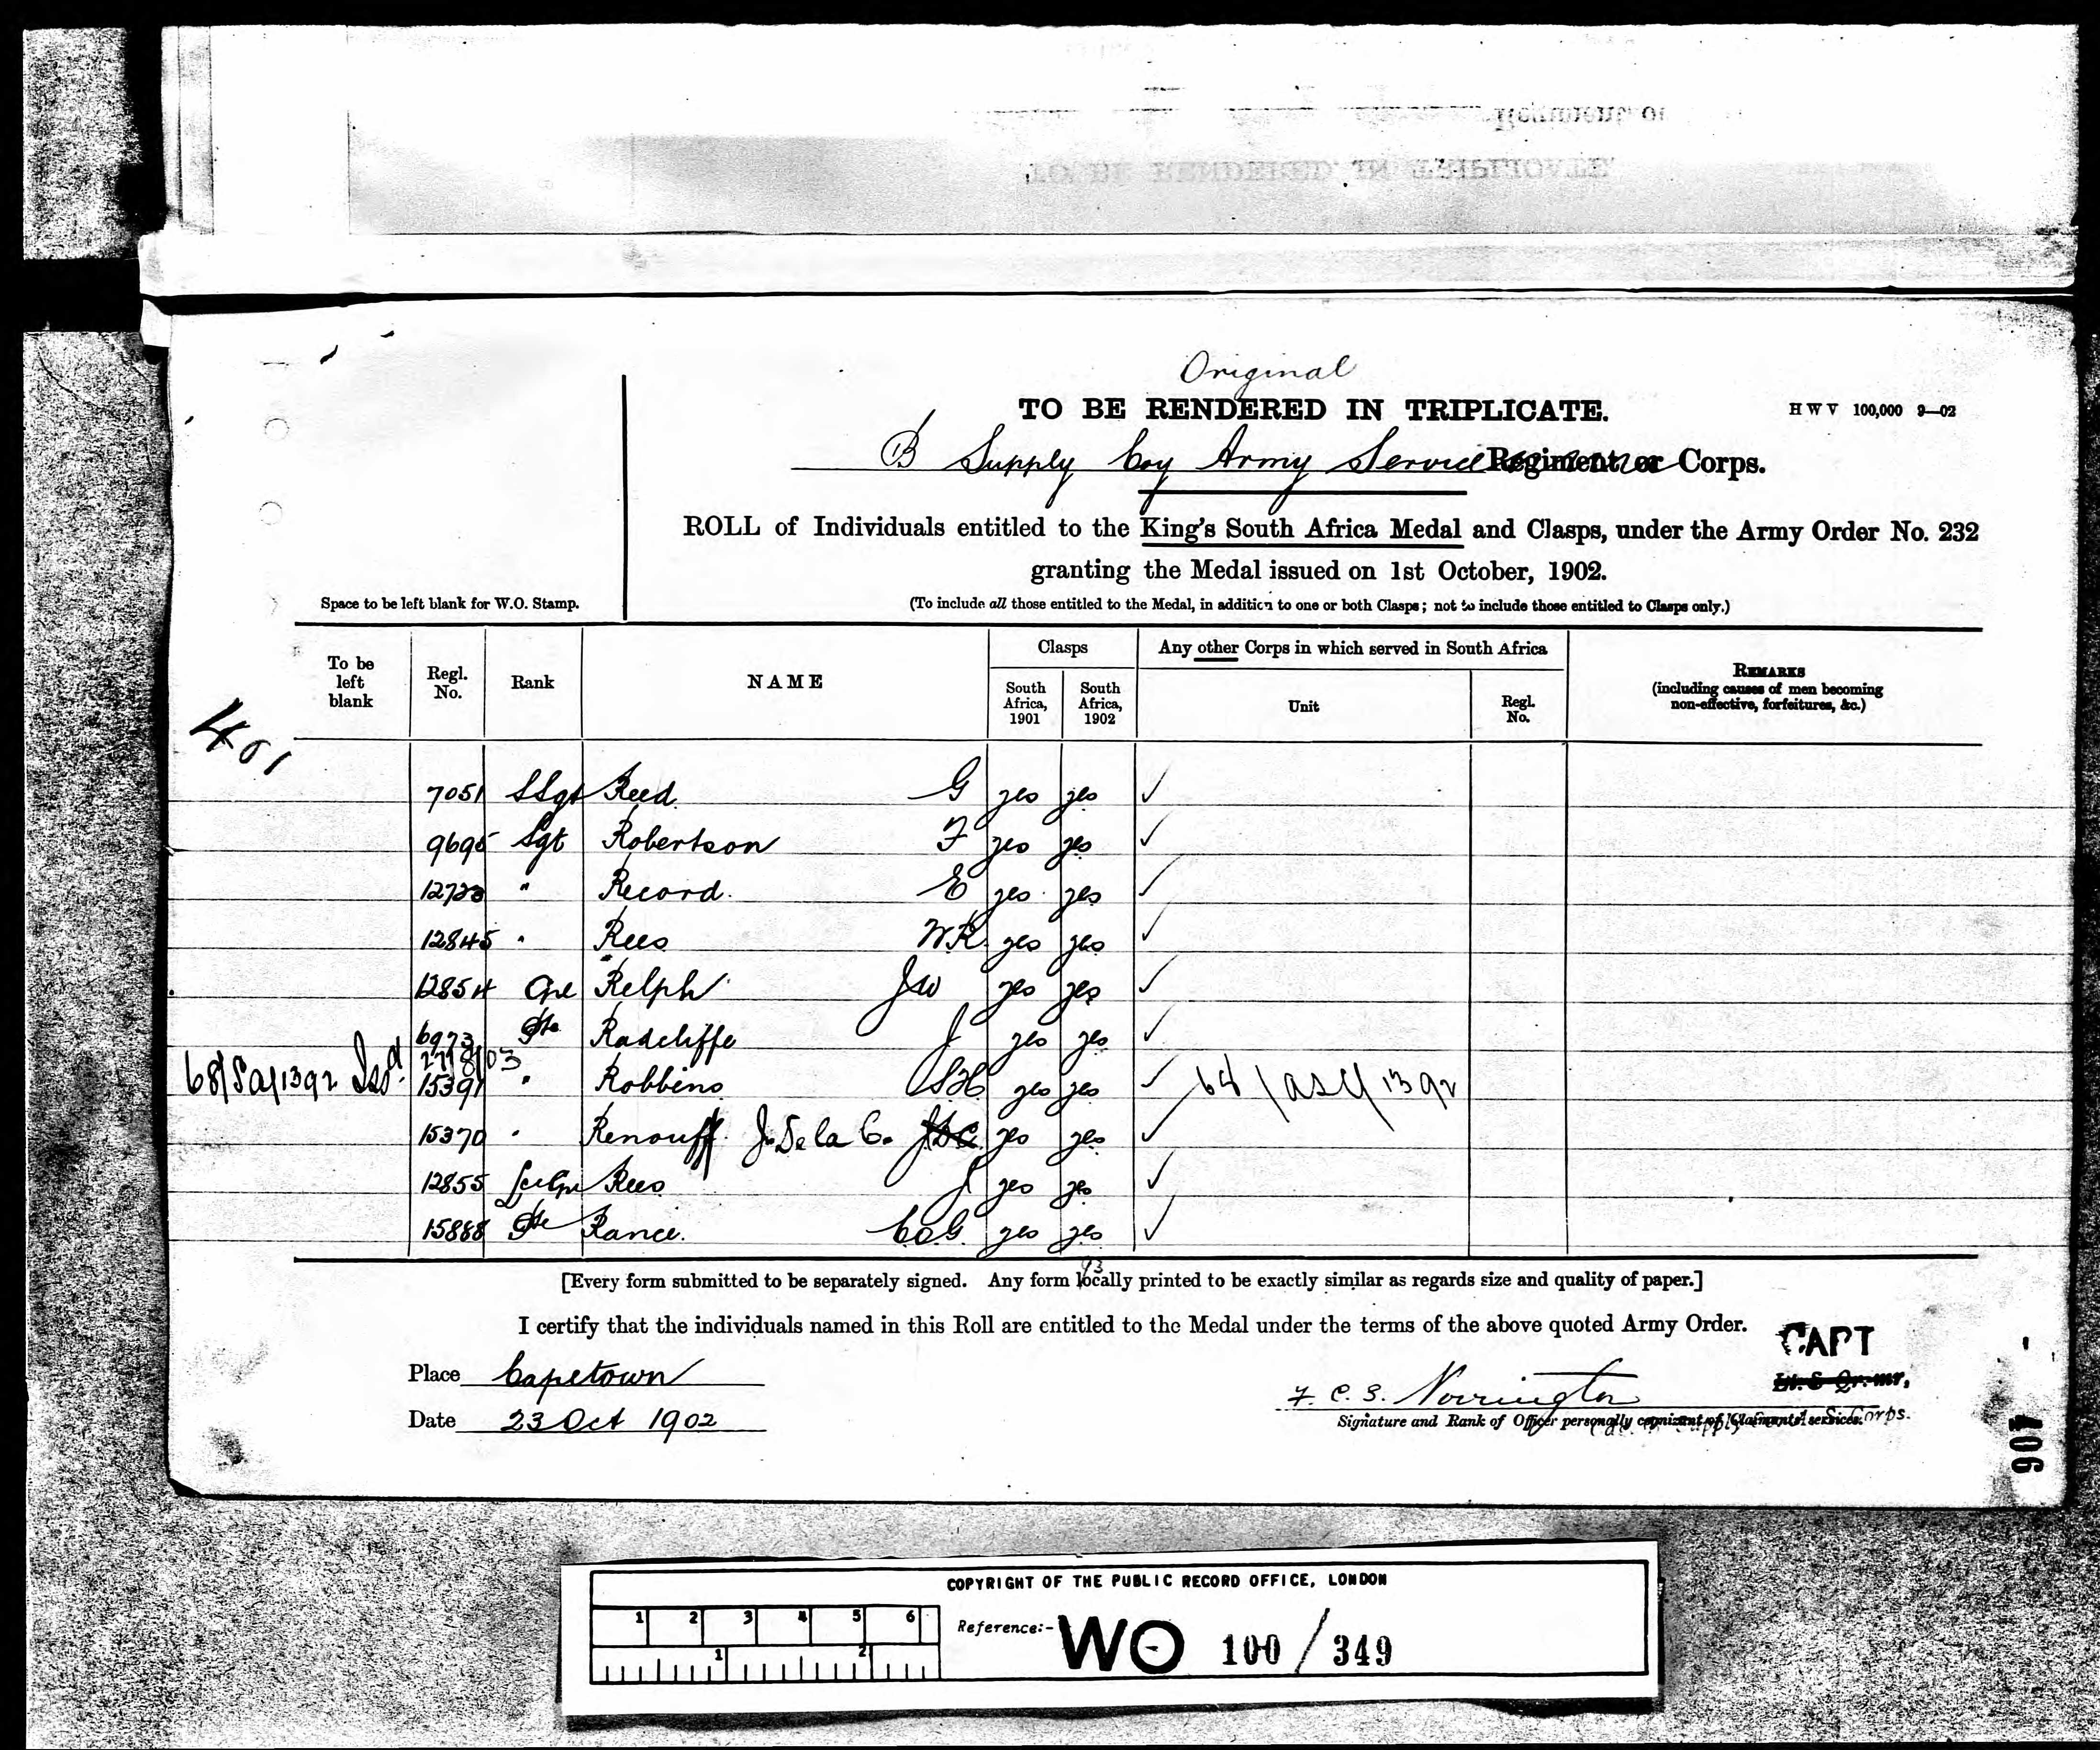 Original
TO BE RENDERED IN TRIPLICATE.
H W V 100,000 9—02
B Supply Coy Army Service Regiment or Corps.
ROLL of Individuals entitled to the King's South Africa Medal and Clasps, under the Army Order No. 232
granting the Medal issued on 1st October, 1902.
Space to be left blank for W.O. Stamp.
(To include all those entitled to the Medal, in addition to one or both Clasps; not to include those entitled to Clasps only.)
To be left blank Regl. No. Rank NAME Clasps South Africa, 1901 South Africa, 1902 Any other Corps in which served in South Africa Unit Regl. No. REMARKS (including causes of men becoming non-effective, forfeitures, &c.)
401
7051 SSgt Reed. G yes yes ✓
9695 Sgt Robertson F yes yes ✓
12723 " Record. E yes yes ✓
12845 " Rees WR. yes yes ✓
12854 Cpl Relph JW yes yes ✓
6973 Pte Radcliffe J yes yes ✓
68/SA/1392 Issd. 27/8/03
15391 " Robbins yes yes ✓ 68/ASC/1392
15370 " Renouff J. De la C. JDC yes yes ✓
12855 Rees J yes yes ✓
15888 Pte Rance. C.O.G. yes yes ✓
93
[Every form submitted to be separately signed. Any form locally printed to be exactly similar as regards size and quality of paper.]
I certify that the individuals named in this Roll are entitled to the Medal under the terms of the above quoted Army Order.
CAPT
Place Capetown
F. C. S. Norrington
Lt. & Qr.-mr,
Date 23 Oct 1902
Signature and Rank of Officer personally cognizant of Claimants' services.
406
COPYRIGHT OF THE PUBLIC RECORD OFFICE, LONDON
1 2 3 4 5 6
1 2
Reference:- WO 100 / 349